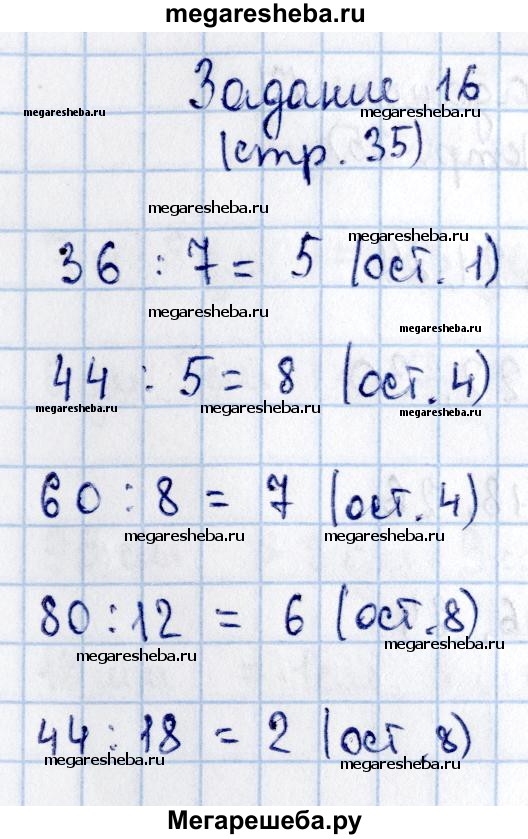 megaresheba.ru
Задание 16
megaresheba.ru megaresheba.ru
(стр. 35)
megaresheba.ru
megaresheba.ru
36 : 7 = 5 (ост. 1)
megaresheba.ru
megaresheba.ru
44 : 5 = 8 (ост. 4)
megaresheba.ru megaresheba.ru megaresheba.ru
60 : 8 = 7 (ост. 4)
megaresheba.ru megaresheba.ru
80 : 12 = 6 (ост. 8)
megaresheba.ru megaresheba.ru
44 : 18 = 2 (ост. 8)
megaresheba.ru megaresheba.ru
Мегарешеба.ру